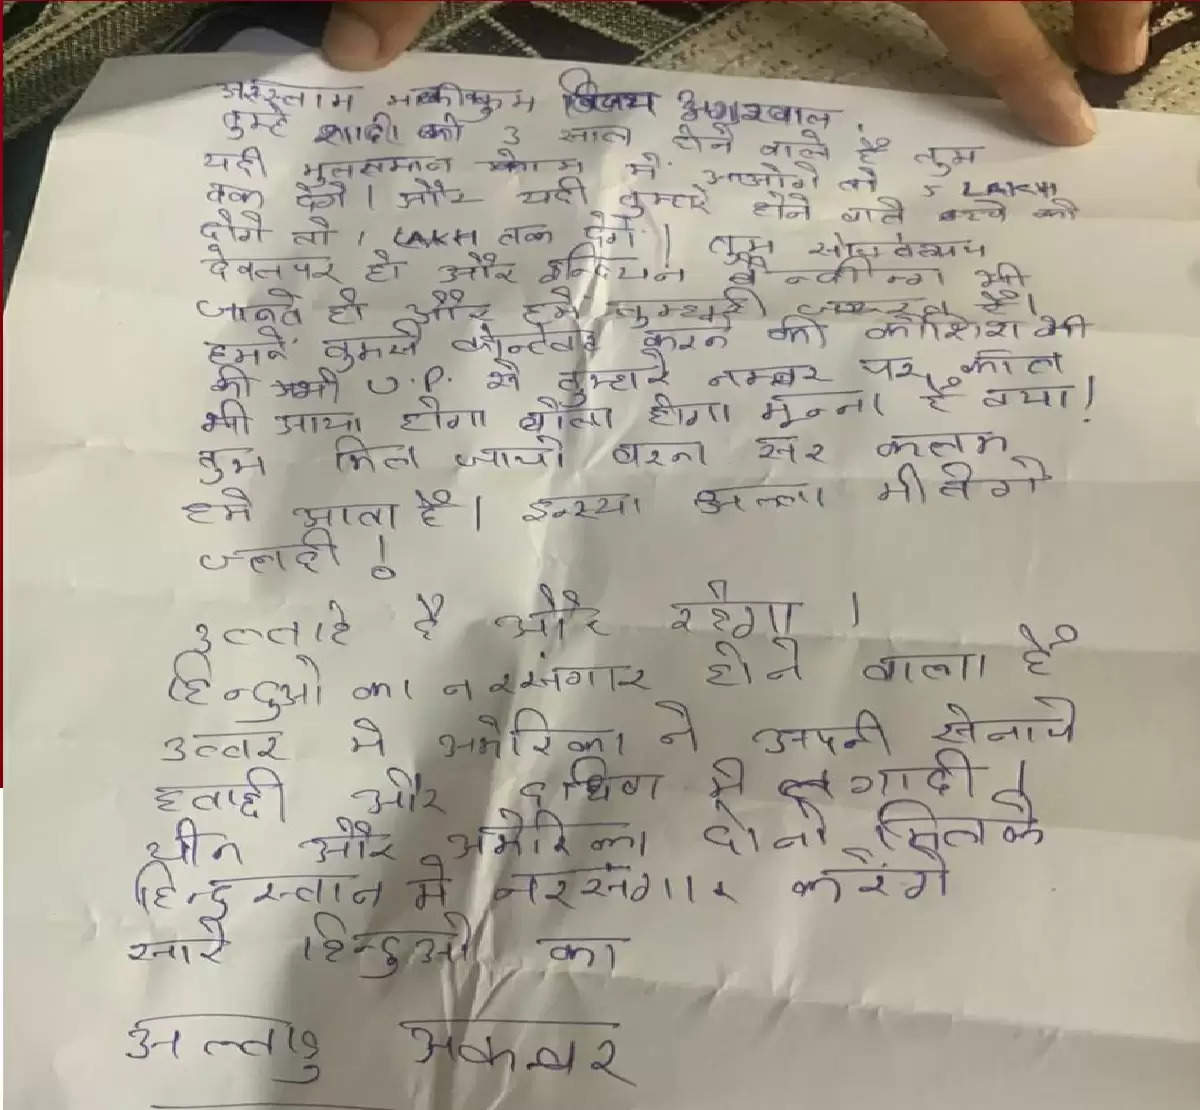 अस्स्लाम मलीकुम विजय अगरवाल,
तुम्हे शादी को 3 साल होने वाले है तुम
यदी मुसलमान कौम में आओगे तो 5 LAKH
तक देगें। और यदी तुम्हारे होने वाले बच्चे को
दोगे तो 1 LAKH तक देगें। तुम सोफ्टवेयर
देवलपर हो और इन्डियन बेन्कीन्ग भी
जानते हो और हमे तुम्हारी जरूरत है।
हमने तुमसे कोन्टेक्ट करने की कोशिश भी
की अभी U.P. से तुम्हारे नम्बर पर काल
भी आया होगा बोला होगा मुन्ना है क्या!
तुम मिल जायो वरना सर कलम
हमे आता है। इन्स्या अल्ला मीलेगे
जलदी!
उल्लाह है और रहेगा।
हिन्दुओ का नरसंगार होने वाला है
उत्तर मे अमेरिका ने अपनी सेनाये
हटादी और दक्षिण मे लगादी!
चीन और अमेरिका दोनो मिलके
हिन्दुस्तान मे नरसंगार करेंगे
सारे हिन्दुओ का
अल्लाहु अकबर